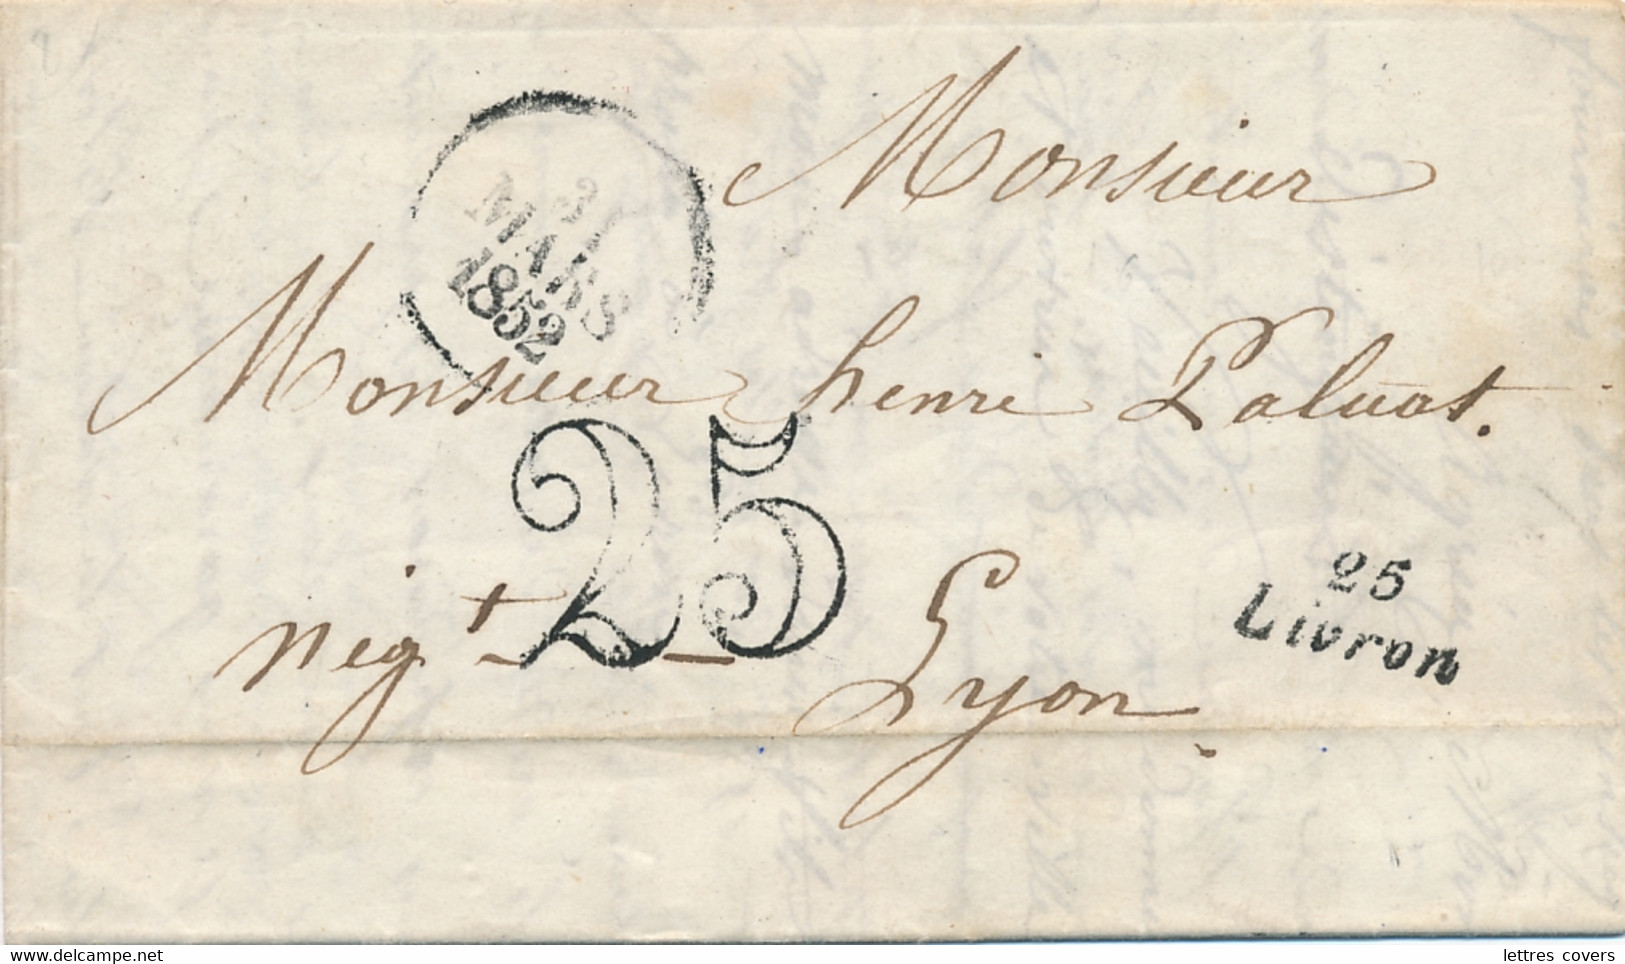 Monsieur
31
MARS
1852
Monsieur henri Paluat.
25
neg.t Lyon
25
Livron
delcampe.net
lettres covers